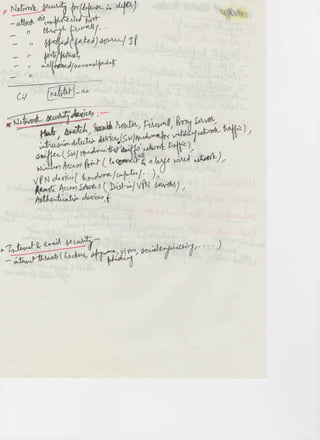 * Network security for (defense in depth)
- attack via unprotected port
- " through firewall/..
- " spoofed (faked) source/IP
- " ports/
- "
- "
C:/ netstat -
* Network security devices :-
Hub, switch, Router, Firewall, Proxy Server
intrusion detection devices (SW/ for network traffic),
sniffer (SW/ that sniffs network traffic),
Wireless Access Point (to connect to a large wired network),
VPN device ( /computer/..),
Access Servers (Dial-in/VPN servers),
Authentication devices,
* Internet & email security -
- internet threats (hackers, spyware, virus, social engineering, ....)
phishing